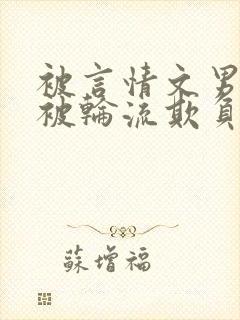 被言情文男
被輪流欺負
蘇增福